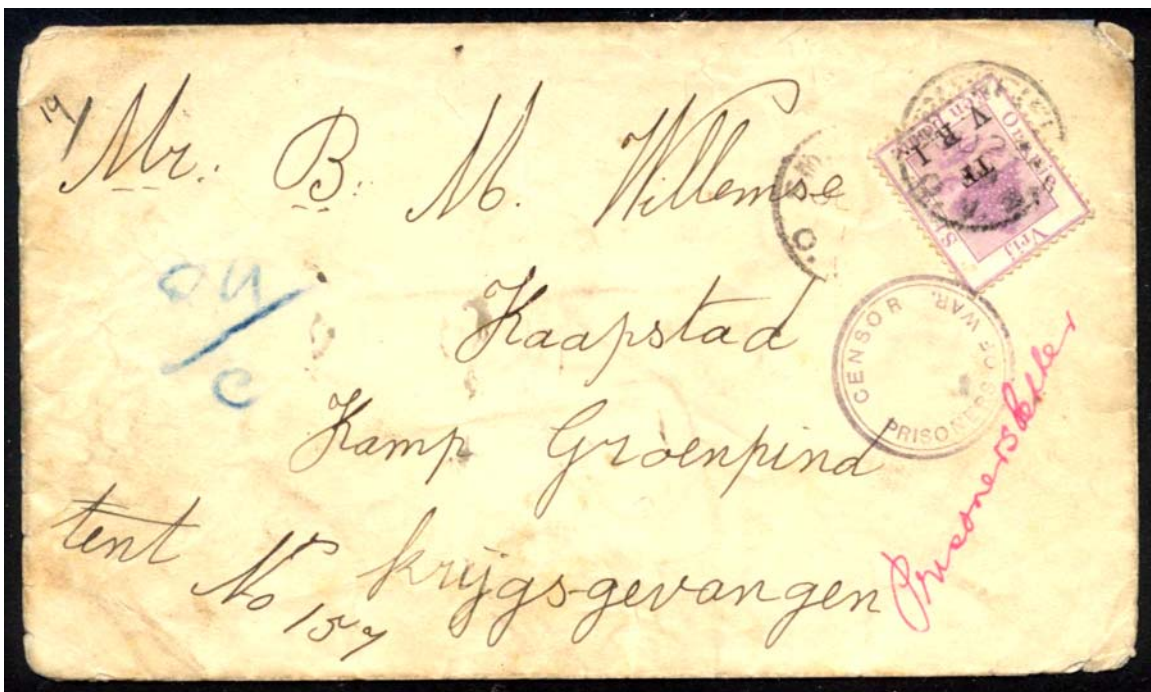 19/
Mr. B. M. Willemse
Kaapstad
Kamp Groenpind
tent No 157
krijgs-gevangen
Prisoners letter
CENSOR
PRISONERS OF WAR.
V R I
Vrij
C